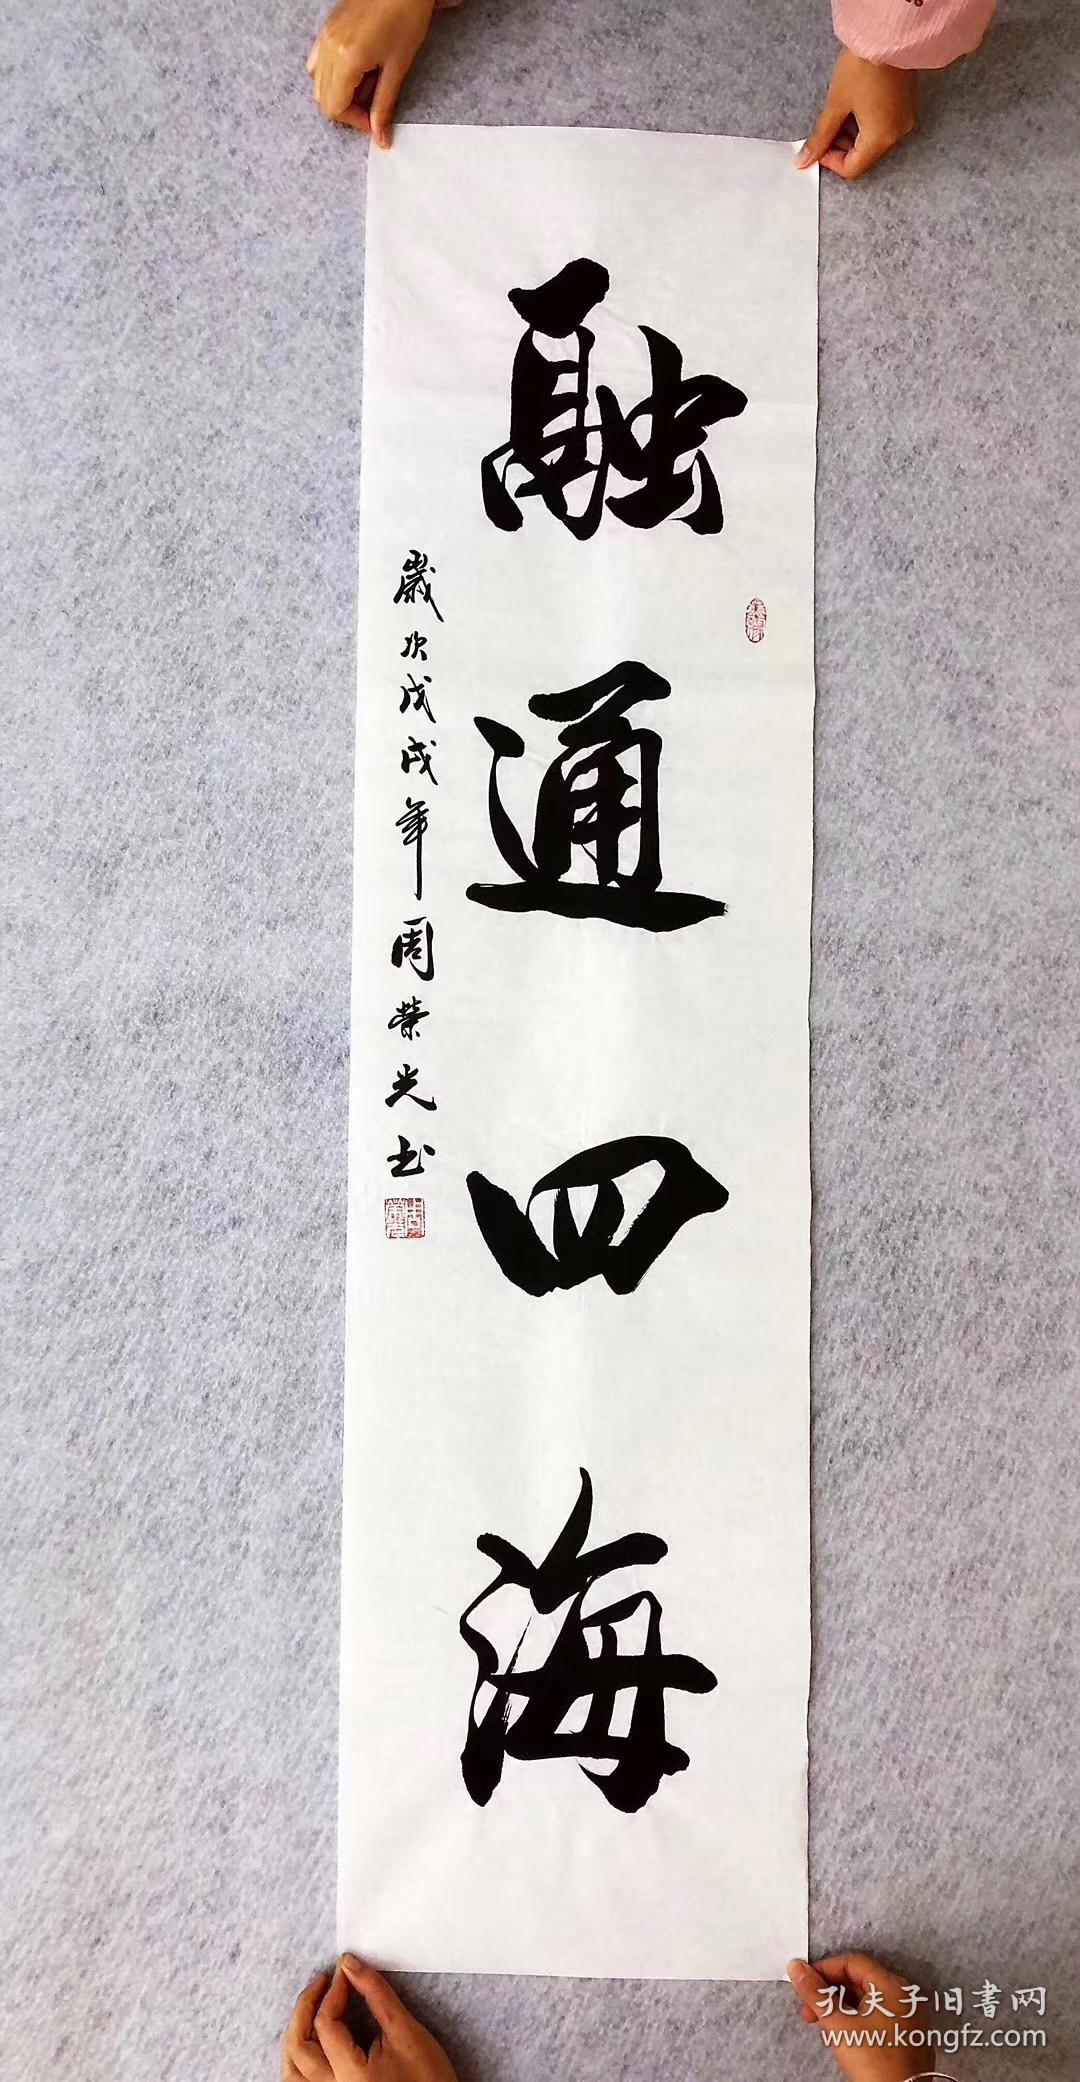 融通四海
歲次戊戌年周榮光书
孔夫子旧書网
www.kongfz.com